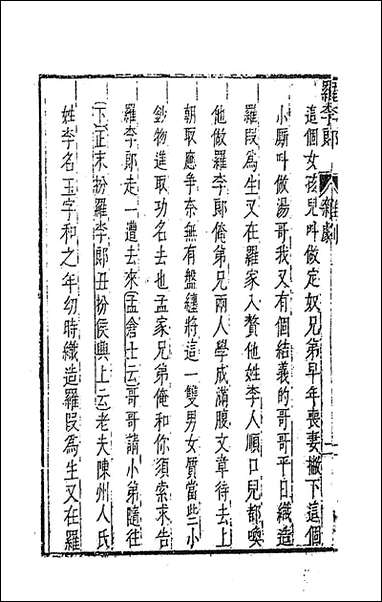 羅李郎 雜劇 二
這個女孩兒呌做定奴兄弟早年喪妻撇下這個
小厮呌做湯哥我又有個結義的哥哥平日織造
羅段為生又在羅家入贅他姓李人順口兒都喚
他做羅李郎俺弟兄兩人學成滿腹文章待去上
朝取應爭奈無有盤纏將這一雙男女質當些小
鈔物進取功名去也孟家兄弟俺和你須索求告
羅李郎走一遭去來孟倉士云哥哥請小弟隨往
下正末扮羅李郎丑扮侯興上云老夫陳州人氏
姓李名玉字和之年幼時織造羅段為生又在羅